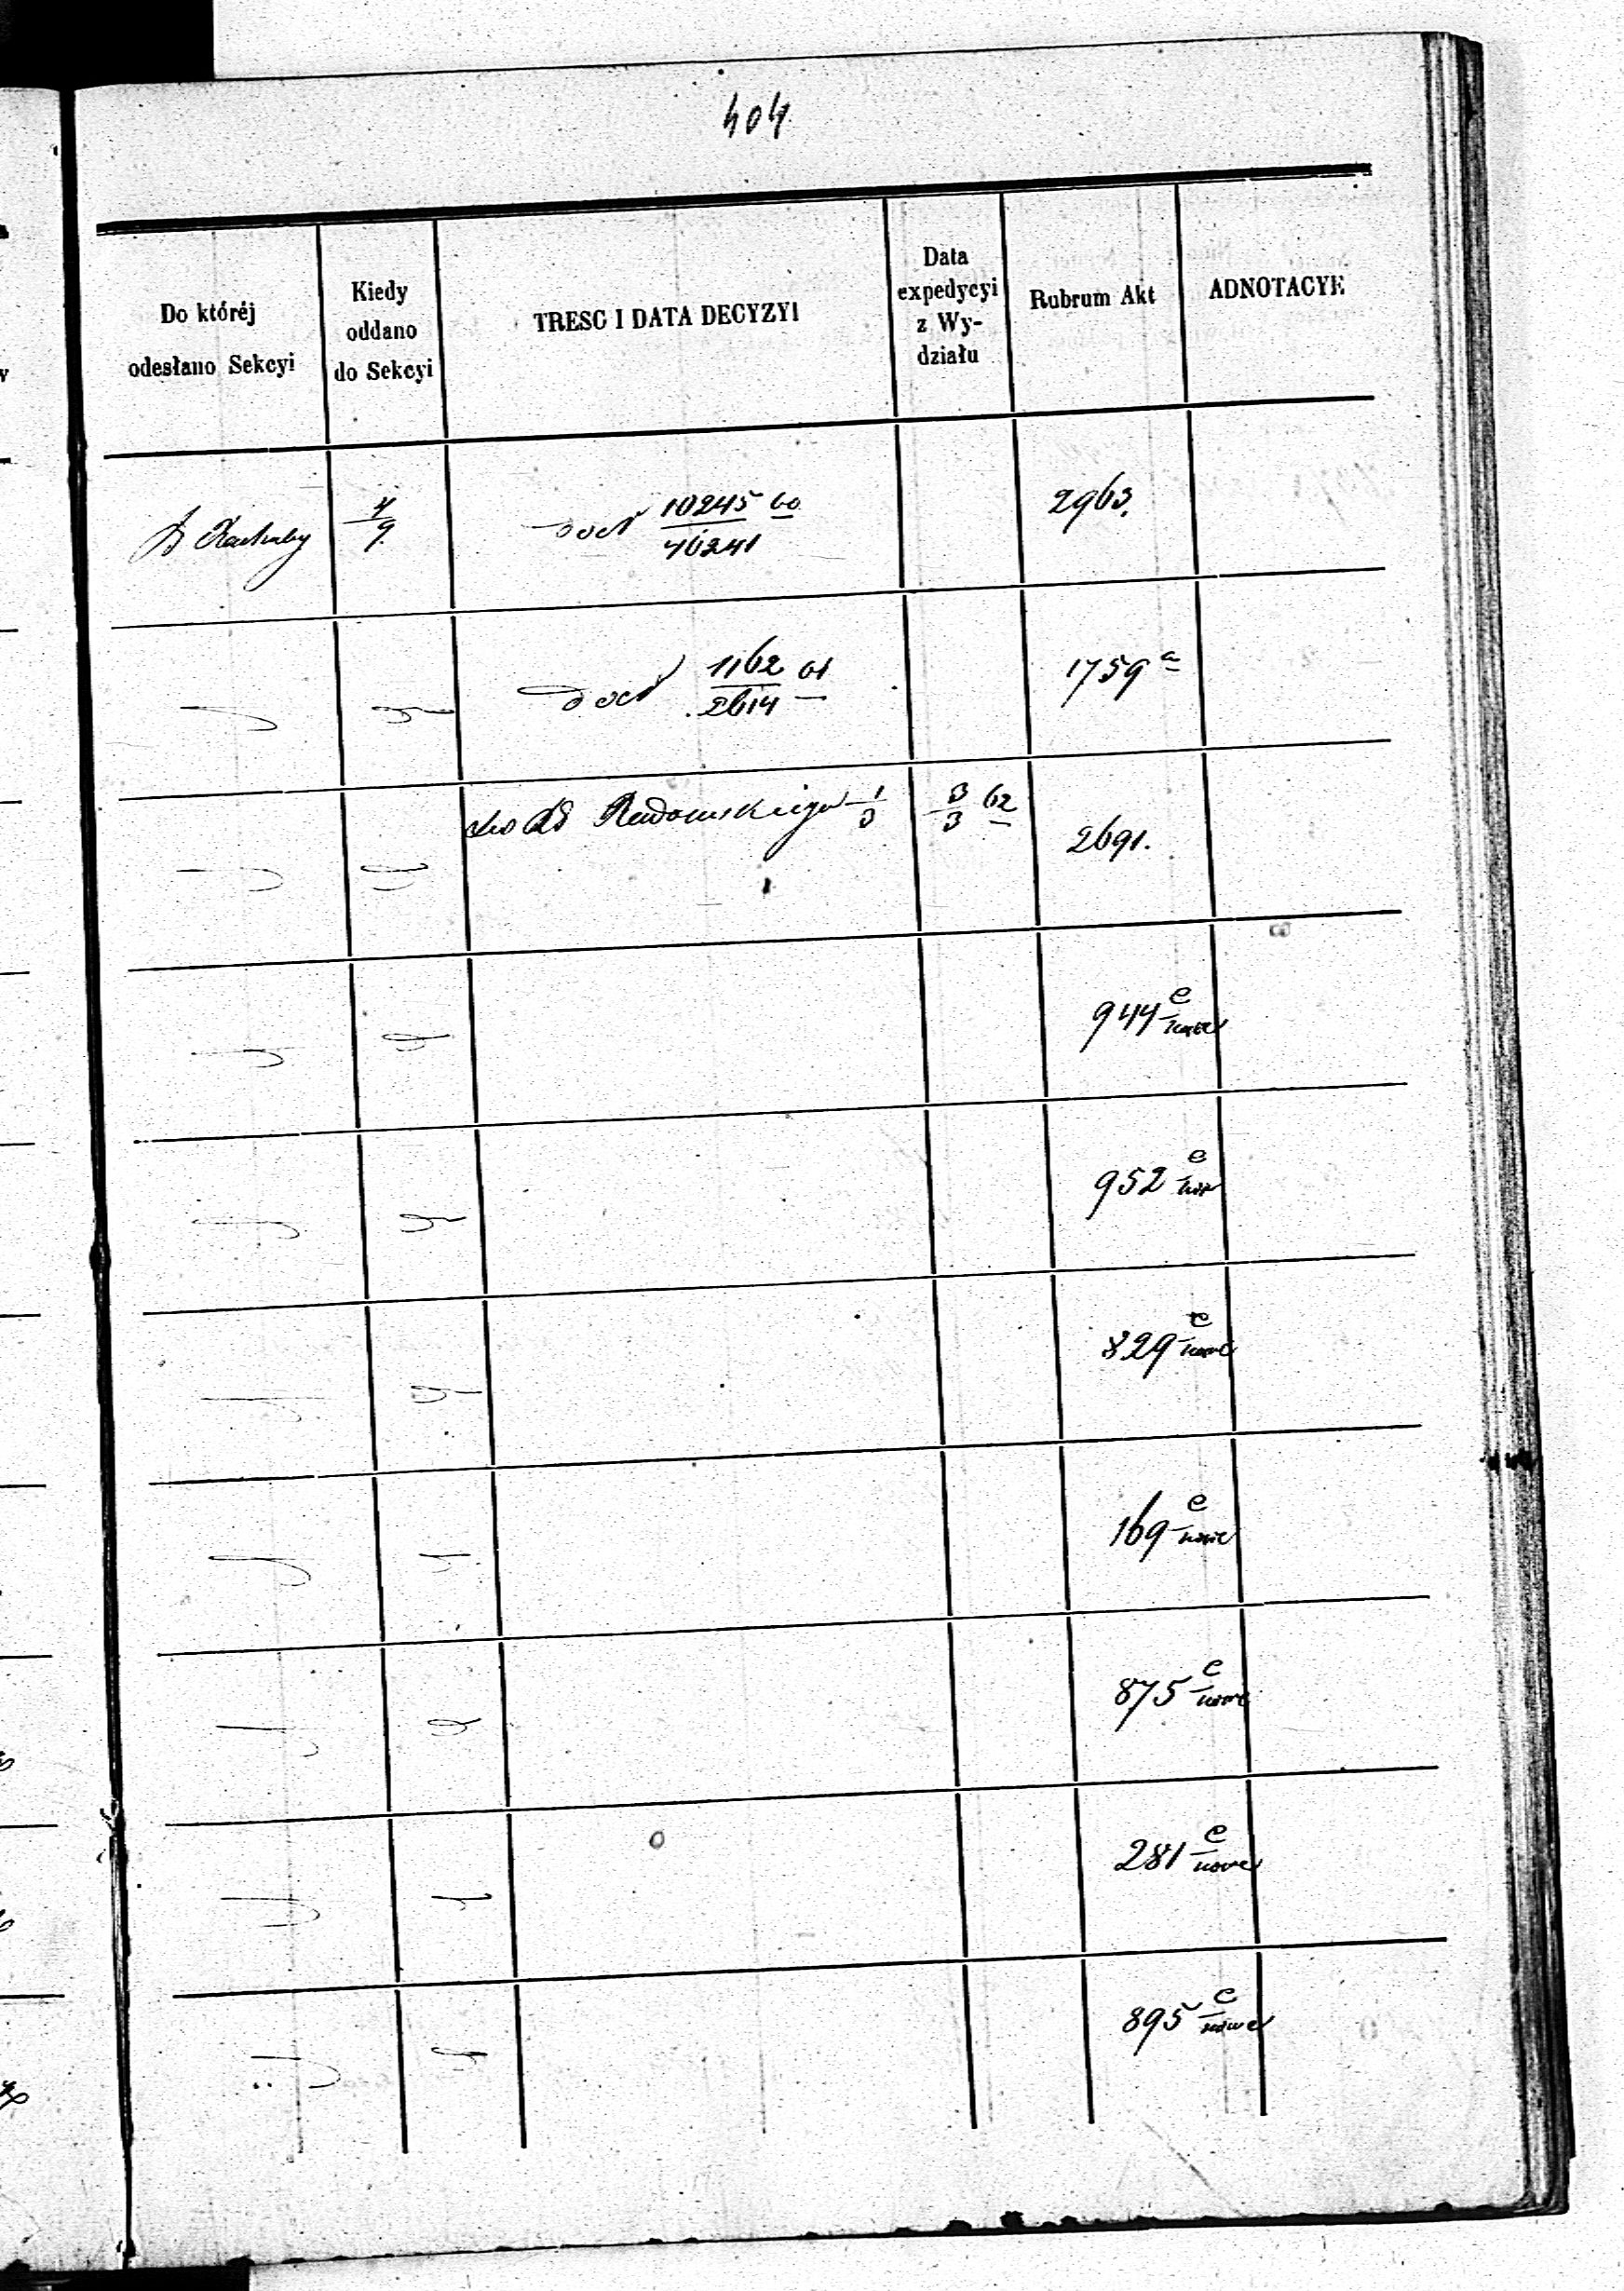 404
Do któréj
odesłano Sekcyi
Kiedy
oddano
do Sekcyi
TRESC I DATA DECYZYI
Data
expedycyi
z Wy-
działu
Rubrum Akt
ADNOTACYE
4
9
10245 60
46241
2963.
1162 61
2614
1759 a
do Radomskiego 1
3
3 62
3
2691.
944 e
nowe
952 e
829 e
nowe
169 e
nowe
875 e
nowe
281 e
nowe
895 e
nowe